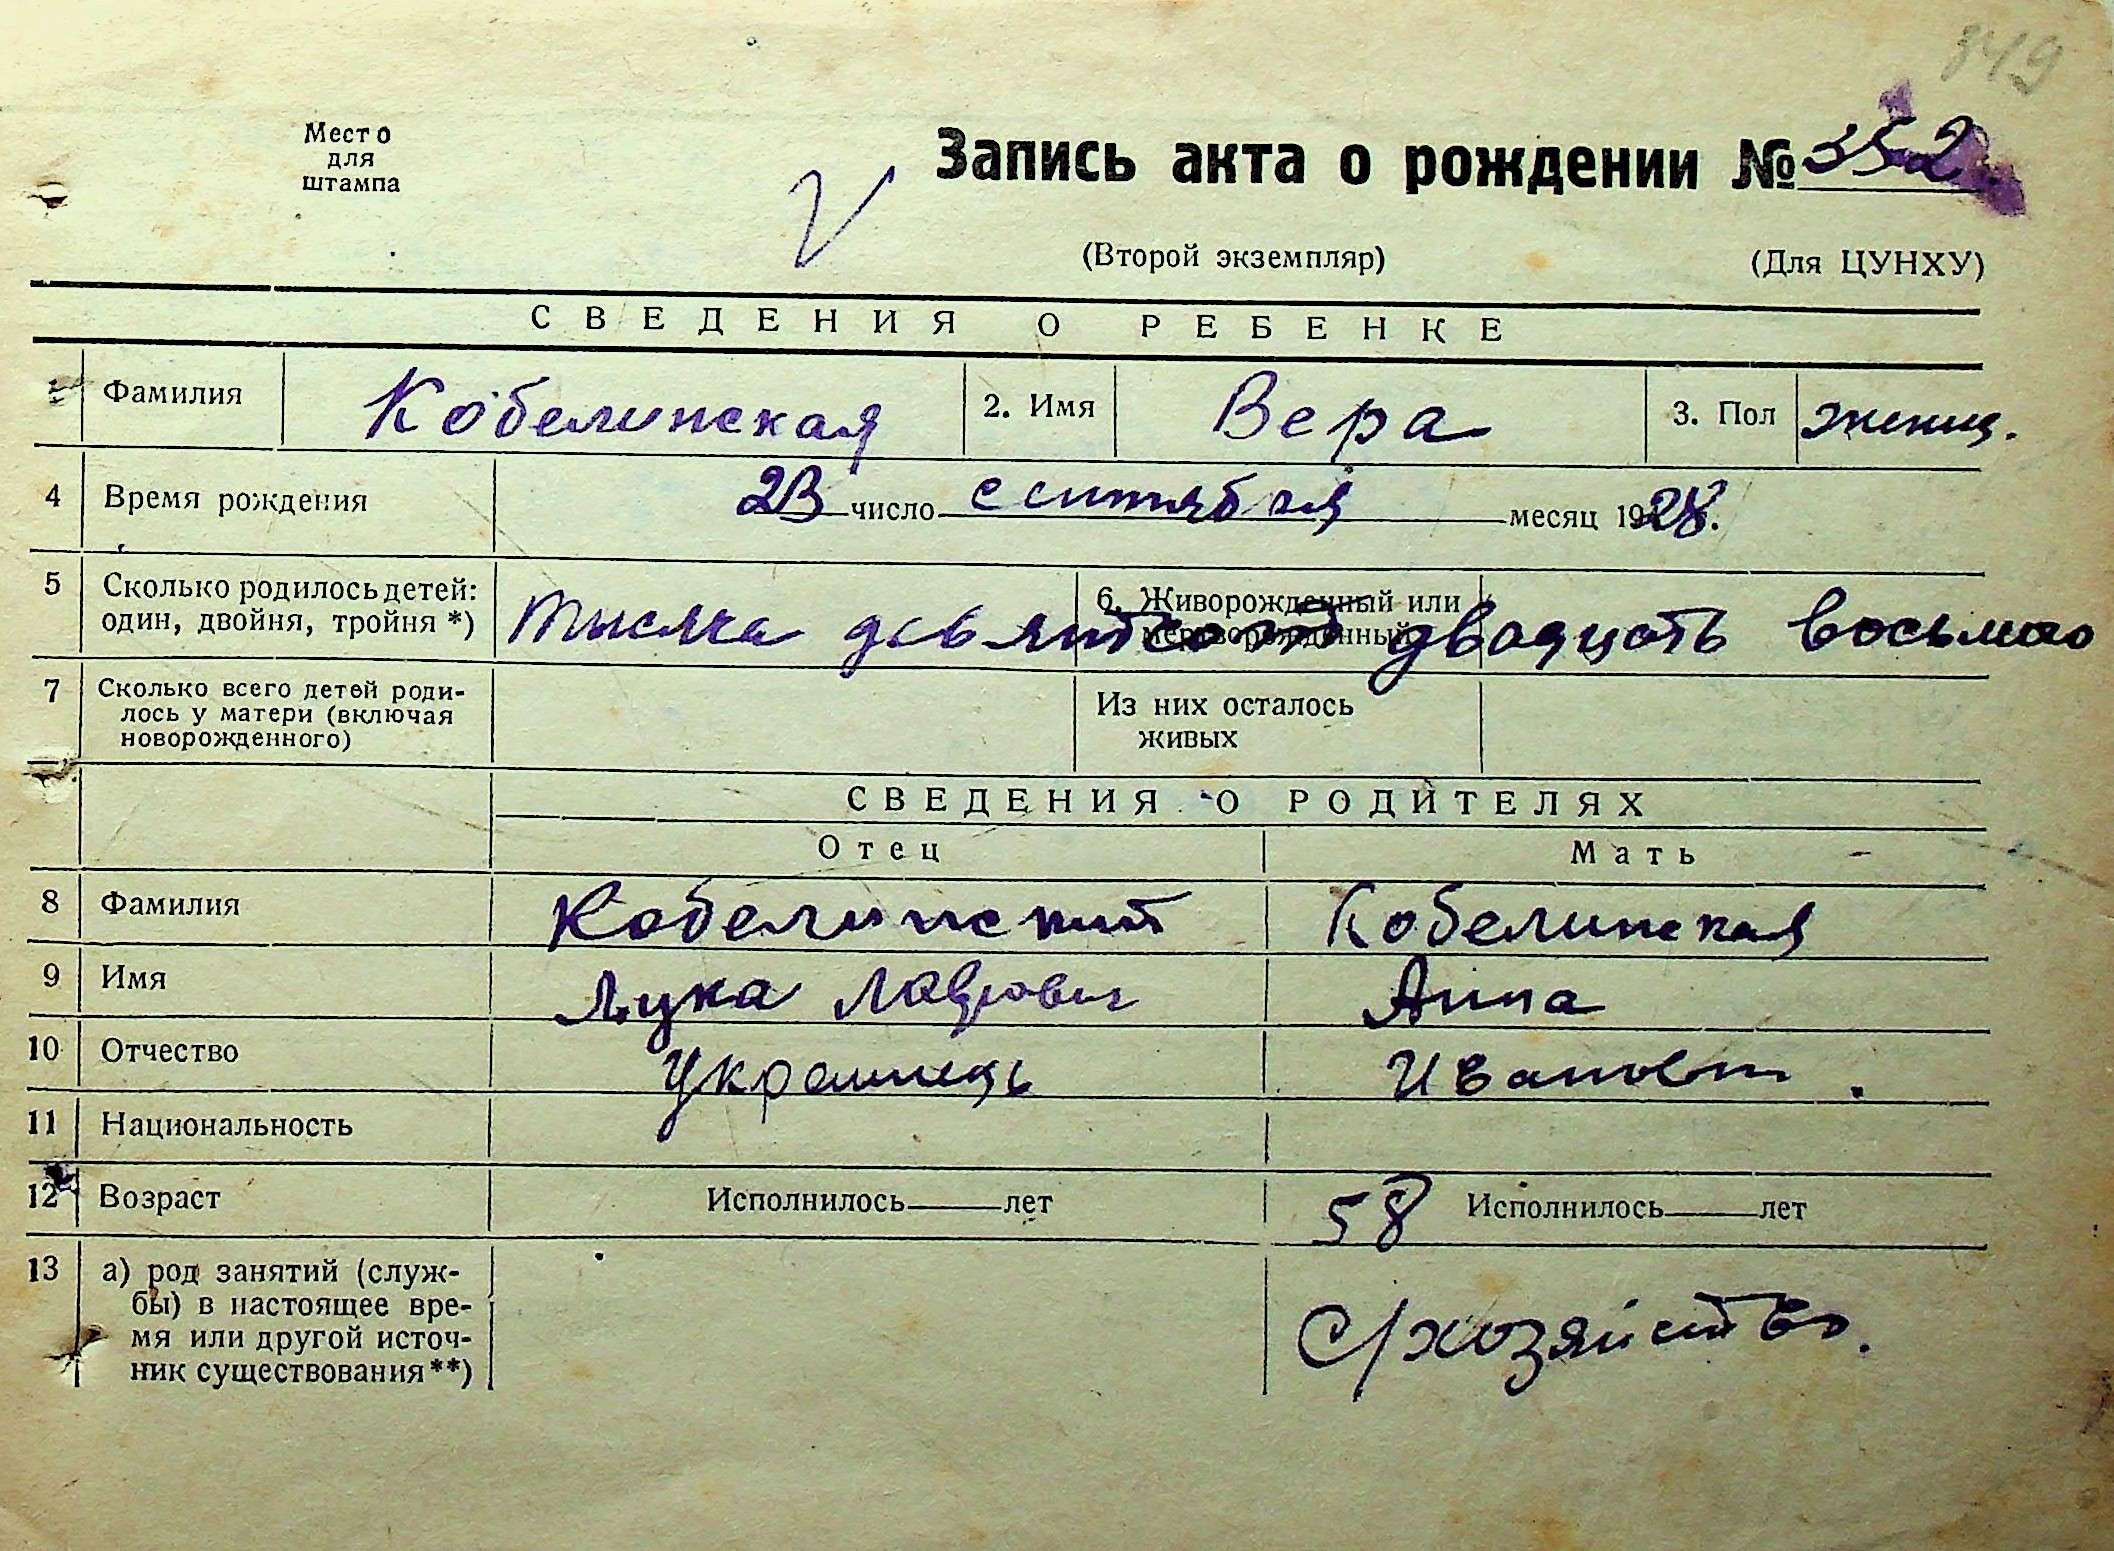 349
Место
для
штампа
Запись акта о рождении № 352
(Второй экземпляр) (Для ЦУНХУ)
СВЕДЕНИЯ О РЕБЕНКЕ
Фамилия Кобелинская 2. Имя Вера 3. Пол женщ.
4 Время рождения 23 число сентября месяц 1928.
5 Сколько родилось детей: один, двойня, тройня *) 6. Живорожденный или мертворожденный
тысяча девятсот двадцать восьмого
7 Сколько всего детей родилось у матери (включая новорожденного) Из них осталось живых
СВЕДЕНИЯ О РОДИТЕЛЯХ
Отец Мать
8 Фамилия Кобелинский Кобелинская
9 Имя Лука Лаврович Анна
10 Отчество Украинець Ивановн .
11 Национальность
12 Возраст Исполнилось лет 58 Исполнилось лет
13 а) род занятий (служ-
бы) в настоящее вре-
мя или другой источ-
ник существования**) с/хозяйство.